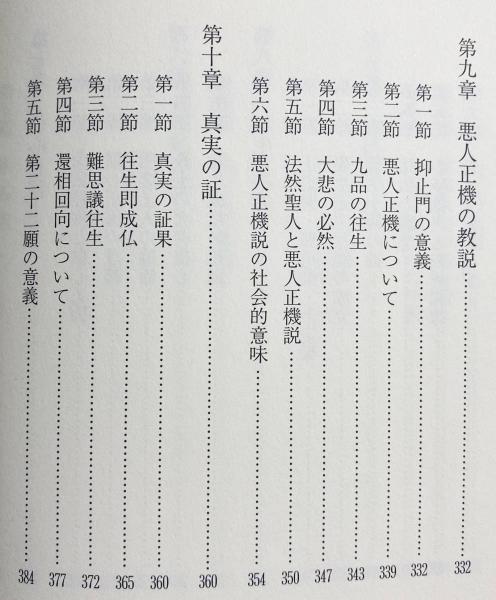 第九章 悪人正機の教説……332
第一節 抑止門の意義……332
第二節 悪人正機について……339
第三節 九品の往生……343
第四節 大悲の必然……347
第五節 法然聖人と悪人正機説……350
第六節 悪人正機説の社会的意味……354
第十章 真実の証……360
第一節 真実の証果……360
第二節 往生即成仏……365
第三節 難思議往生……372
第四節 還相回向について……377
第五節 第二十二願の意義……384